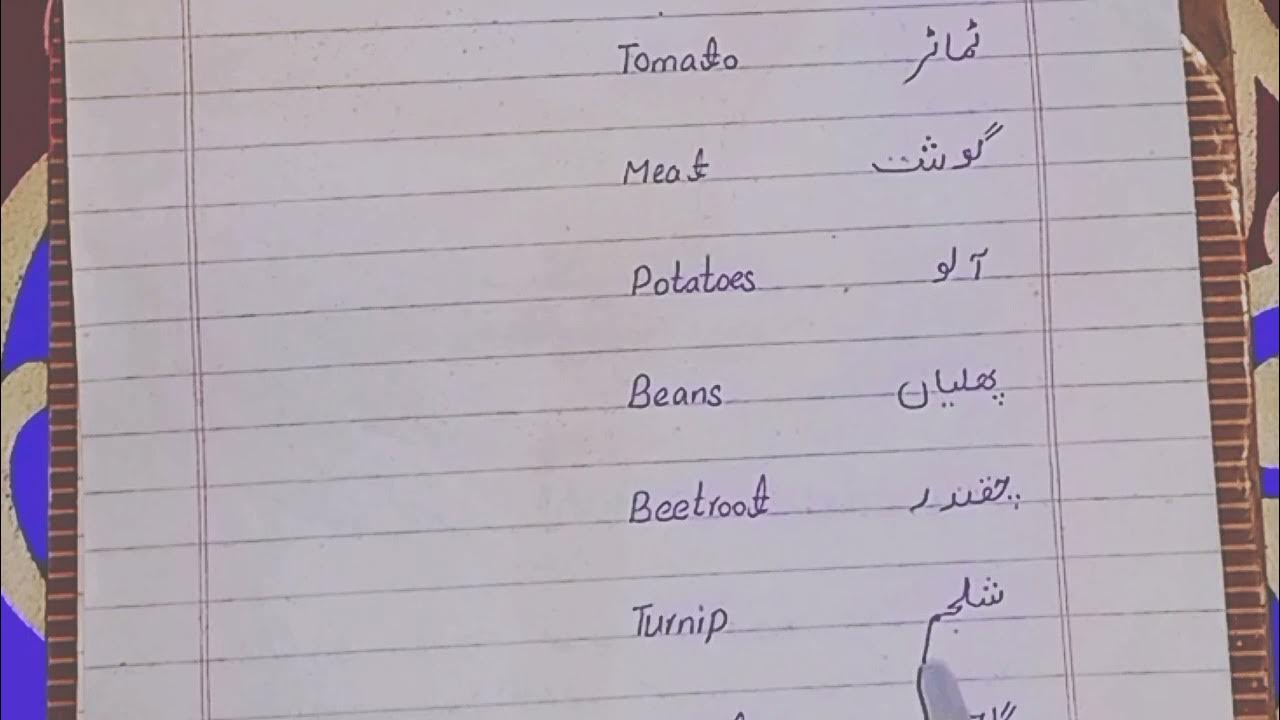 Tomato ٹماٹر
Meat گوشت
Potatoes آلو
Beans پھلیاں
Beetroot چقندر
Turnip شلجم